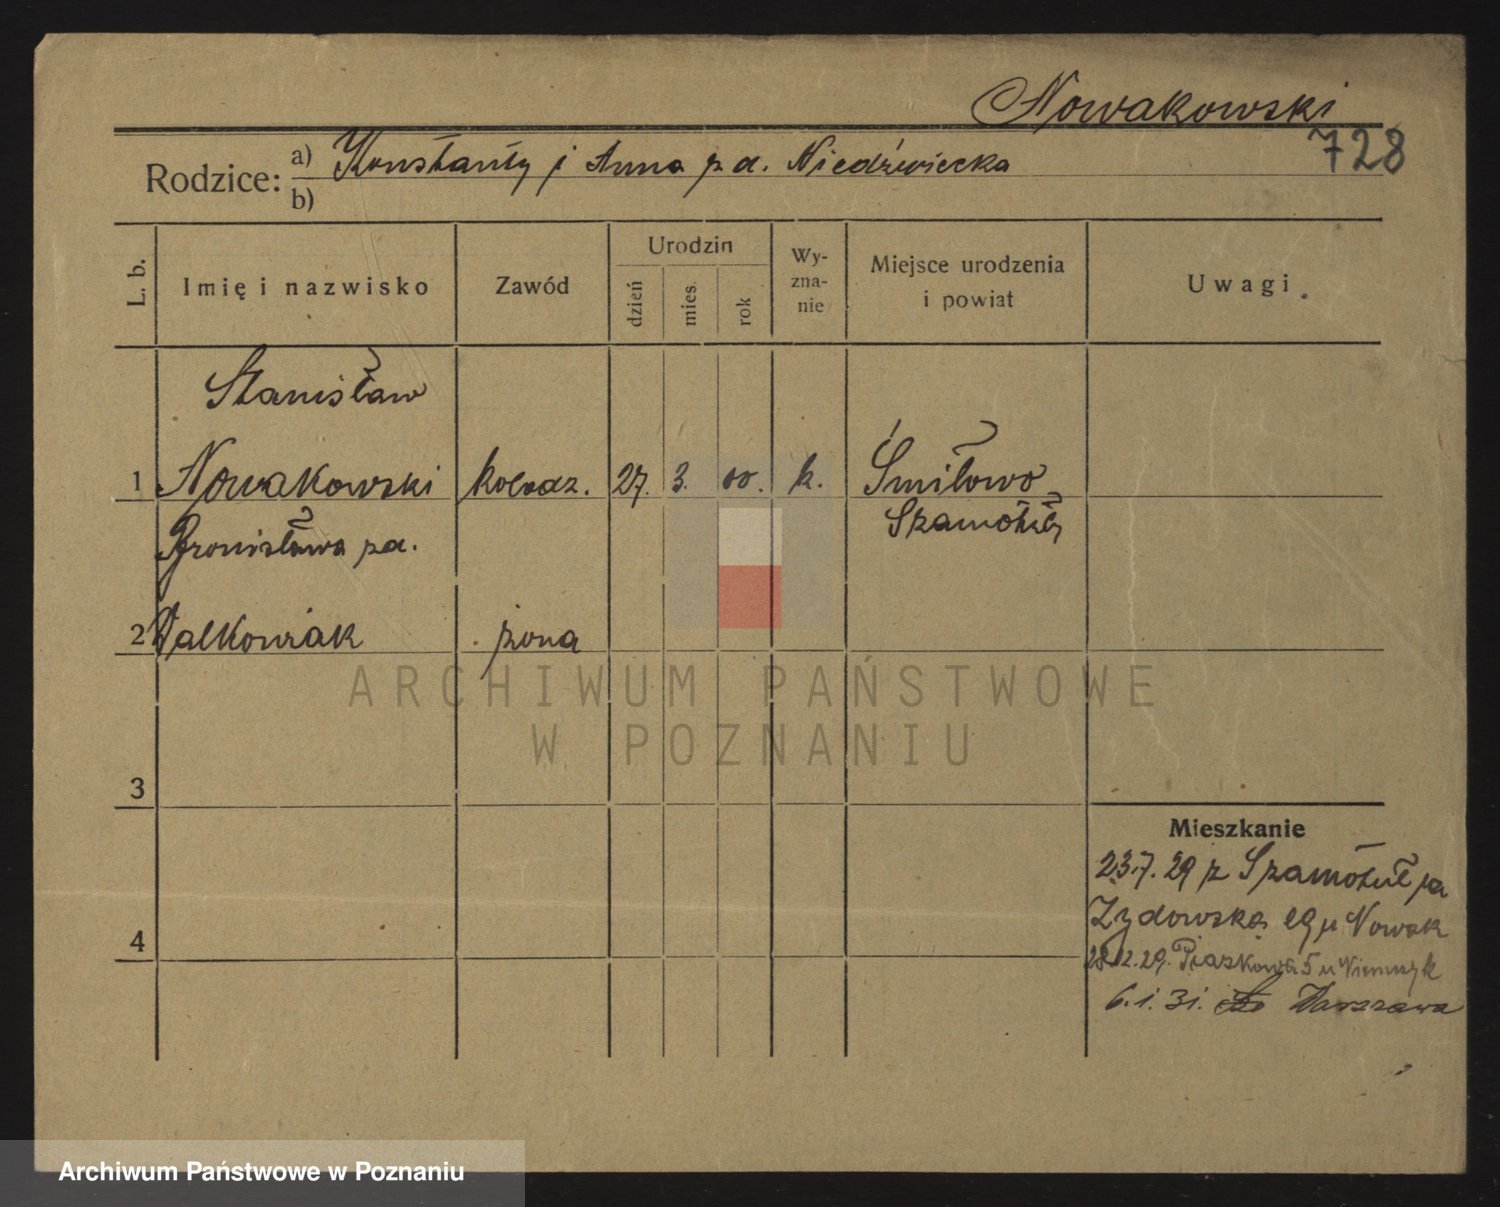 Nowakowski
728
Rodzice: a) Konstanty i Anna z d. Niedźwiecka
b)
L. b. Imię i nazwisko Zawód Urodzin dzień mies. rok Wy-zna-nie Miejsce urodzenia i powiat Uwagi
Stanisław
1 Nowakowski kołodz. 27. 3. 00. k. Śmiłowo
Szamotuły
Bronisława z d.
2 Walkowiak żona
3
Mieszkanie
23.7.29 z Szamotuł na
Żydowska 29 u Nowak
4
28.12.29. Piaskowa 5 u Niemczyk
6.1.31. Warszawa
ARCHIWUM PAŃSTWOWE
W POZNANIU
Archiwum Państwowe w Poznaniu